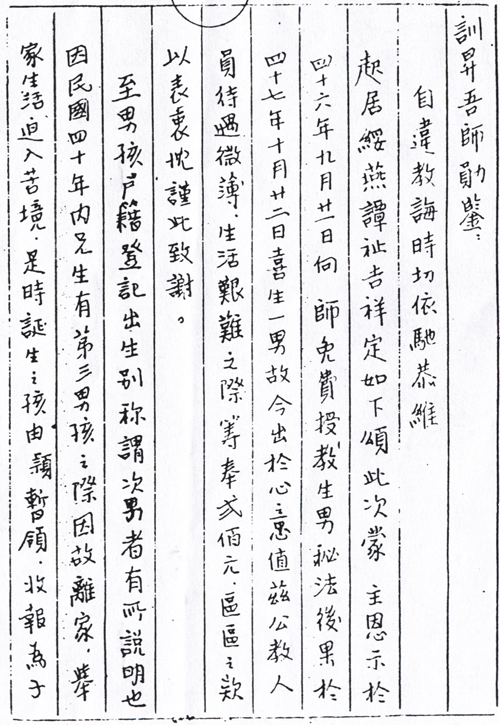 訓昇吾師勛鑒：
自違教誨時切依馳恭維
起居綏燕譚祉吉祥定如下頌此次蒙 主恩示於
四十六年九月廿一日向 師免費授教生男秘法後果於
四十七年十月廿二日喜生一男故今出於心意值茲公教人
員待遇微薄．生活艱難之際籌奉貳佰元．區區之款
以表衷忱謹此致謝。
至男孩戶籍登記出生別称謂次男者有所說明也
因民國四十年內兄生有第三男孩之際因故離家．舉
家生活迫入苦境．是時誕生之孩由 暫領．收報為子